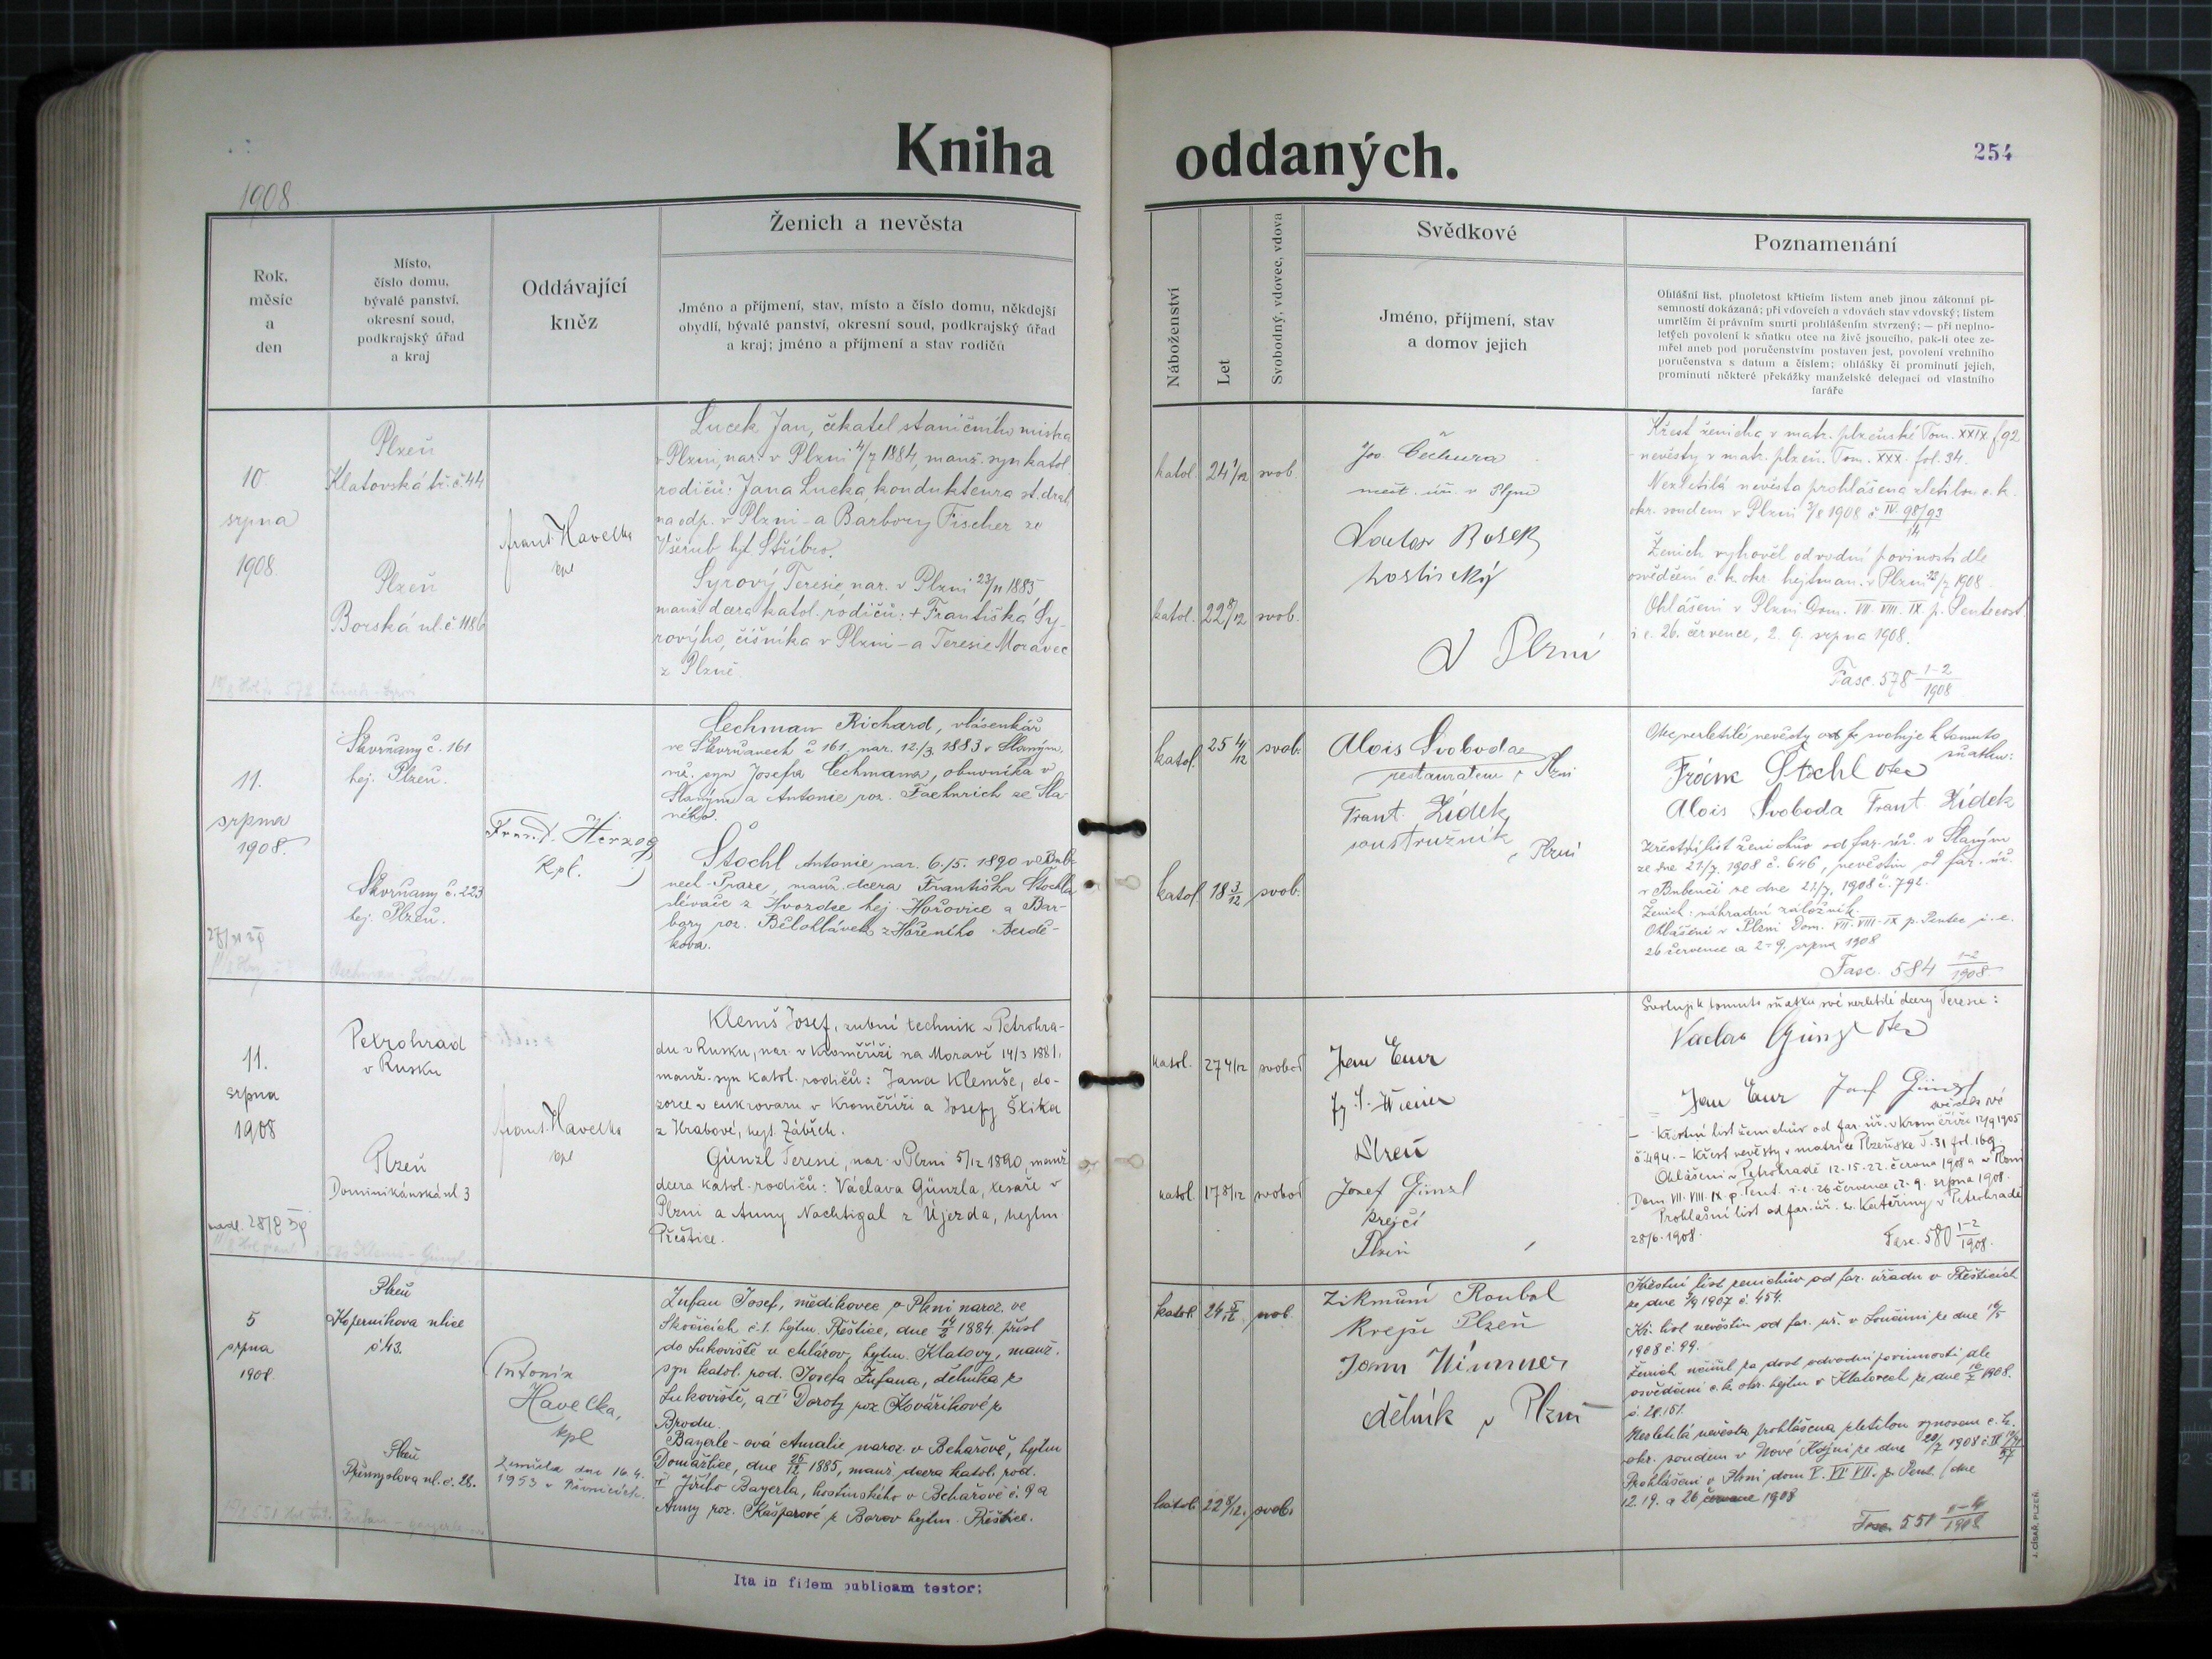 Kniha oddaných.
254
1908
Rok,
měsíc
a
den
Místo,
číslo domu,
bývalé panství,
okresní soud,
podkrajský úřad
a kraj
Oddávající
kněz
Ženich a nevěsta
Jméno a příjmení, stav, místo a číslo domu, někdejší
obydlí, bývalé panství, okresní soud, podkrajský úřad
a kraj; jméno a příjmení a stav rodičů
Náboženství
Let
Svobodný, vdovec, vdova
Svědkové
Jméno, příjmení, stav
a domov jejich
Poznamenání
Ohlášní list, plnoletost křticím listem aneb jinou zákonní pí-
semností dokázaná; při vdovcích a vdovách stav vdovský; listem
umrlčím či právním smrti prohlášením stvrzený; — při neplno-
letých povolení k sňatku otce na živě jsoucího, pak-li otec ze-
mřel aneb pod poručenstvím postaven jest, povolení vrchního
poručenstva s datum a číslem; ohlášky či prominutí jejich,
prominutí některé překážky manželské delegací od vlastního
faráře
10.
srpna
1908
Plzeň
Klatovská tř. č. 44
Plzeň
Borská ul. č. 1186
Frant. Havelka
kpl
Lucek Jan, čekatel staničního mistra
v Plzni, nar. v Plzni 4/7 1884, manž. syn katol.
rodičů: Jana Lucka, kondukteura st. drah
na odp. v Plzni – a Barbory Fischer ze
Všerub hjt. Stříbro.
Syrový Teresie, nar. v Plzni 23/11 1885,
manž. dcera katol. rodičů: + Františka Sy-
rovýho, číšníka v Plzni – a Teresie Moravec
z Plzně.
katol. 24 1/12 svob.
katol. 22 8/12 svob.
Jos. Čechura
v Plzni
hostinský
V Plzni
Křest ženicha v matr. plzeňské Tom. XXIX f 92
– nevěsty v matr. plzeň. Tom. XXX. fol. 34.
Nezletilá nevěsta prohlášena zletilou c. k.
okr. soudem v Plzni 3/8 1908 č. IV. 98/93
14
Ženich vyhověl odvodní povinosti dle
osvědčení c. k. okr. hejtman. v Plzni 22/7 1908.
Ohlášeni v Plzni Dom. VII. VIII. IX. p. Pentecost
i. e. 26. července, 2. 9. srpna 1908.
Fasc. 578 1-2
1908
11.
srpna
1908.
Škvrňany č. 161
hej. Plzeň.
Škvrňany č. 223
hej. Plzeň.
Frant. Herzog
Kpl.
Cechman Richard, vlásenkář
ve Škvrňanech č 161, nar. 12./3. 1883 v Slaným,
mž. syn Josefa Cechmana, obuvníka v
Slaným a Antonie roz. Faehnrich ze Sla-
ného.
Štochl Antonie nar. 6./5. 1890 v Bub-
nech - Praze, manž. dcera Františka Štochla
slévače z Hvozdce hej. Hořovice a Bar-
bory roz. Bělohlávek z Hořeního Bezdě-
kova.
katol. 25 4/12 svob.
katol. 18 3/12 svob.
Alois Svoboda
restauratem v Plzni
Frant. Zídek
soustružník
v Plzni
Otec nezletilé nevěsty svoluje k tomuto
sňatku:
Štochl otec
Alois Svoboda Frant. Zídek
Křestní list ženichův od far. úř. v Slaným
ze dne 21./7. 1908 č. 646, nevěstin od far. úř.
v Bubenči ze dne 21/7. 1908 č. 792.
Ženich: náhradní záložník.
Ohlášeni v Plzni Dom. VII. VIII. IX p. Pentec. i. e.
26 července a 2 - 9. srpna 1908
Fasc. 584 1-2
1908.
11.
srpna
1908
Petrohrad
v Rusku
Plzeň
Dominikánská ul. 3
Frant. Havelka
kpl
Klemš Josef, zubní technik v Petrohra-
du v Rusku, nar. v Kroměříži na Moravě 14/3 1881.
manž. syn katol. rodičů: Jana Klemše, do-
zorce v cukrovaru v Kroměříži a Josefy Štika
z Hrabové, hejt. Zábřeh.
Günzl Teresie, nar. v Plzni 5/12 1890, manž.
dcera katol. rodičů: Václava Günzla, tesaře v
Plzni a Anny Nachtigal z Újezda, hejtm.
Přeštice.
katol. 27 4/12 svobod
katol. 17 8/12 svobod
Plzeň
Josef Günzl
krejčí
Plzeň
Svoluji k tomuto sňatku své nezletilé dcery Teresie:
Václav Günzl otec
Josef Günzl
– Křestní list ženichův od far. úř. v Kroměříži 12/9 1905
č. 494. – Křest nevěsty v matrice Plzeňské T. 31 fol. 169
Ohlášeni v Petrohradě 12. 15. 22. června 1908 a v Plzni
Dom VII. VIII. IX. p. Pent. i. e. 26 července, 2. 9. srpna 1908.
Prohlašní list od far. úř. sv. Kateřiny v Petrohradě
28/6. 1908.
Fasc. 580 1-2
1908.
5
srpna
1908.
Plzeň
Koperníkova ulice
č. 43.
Plzeň
Přemyslova ul. č. 28.
Antonín
Havelka,
kpl
Zemřela dne 16. 4.
1953 v
Žufan Josef, mědikovec v Plzni naroz. ve
Skočicích č. 1. hejtm. Přeštice, dne 14/2 1884. přísl.
do Lukoviště u Chlázov, hejtm. Klatovy, manž.
syn katol. rod. Josefa Žufana, dělníka z
Lukoviště, a Doroty roz. Kovaříkové z
Brodu.
Bayerle-ová Amalie naroz. v Behařově, hejtm
Domažlice, dne 26/12 1885, manž. dcera katol. rod.
Jiřího Bayerla, hostinského v Behařově č. 9 a
Anny roz. Kašparové z Borov hejtm. Přeštice.
katol. 24 5/12 svob.
katol. 22 8/12. svob.
Zikmund Roubal
Krejčí Plzeň
dělník v Plzni
Křestní list ženichův od far. úřadu v Přešticích
ze dne 1907 č. 454.
Kř. list nevěstin od far. úř. v Loučimi ze dne
1908 č. 99.
Ženich učinil za dost odvodní povinnosti dle
osvědčení c. k. okr. hejtm v Klatovech ze dne 1908.
č. 28.151.
Nezletilá nevěsta prohlášena zletilou výnosem c. k.
okr. soudem v Nové Kdyni ze dne 28/7 1908
Prohlášeni v Plzni dom V. VI. VII. p. Pent. / dne
12. 19. a 26 1908
Fasc. 551
1908
Ita in fidem publicam testor:
J. CÍSAŘ, PLZEŇ.